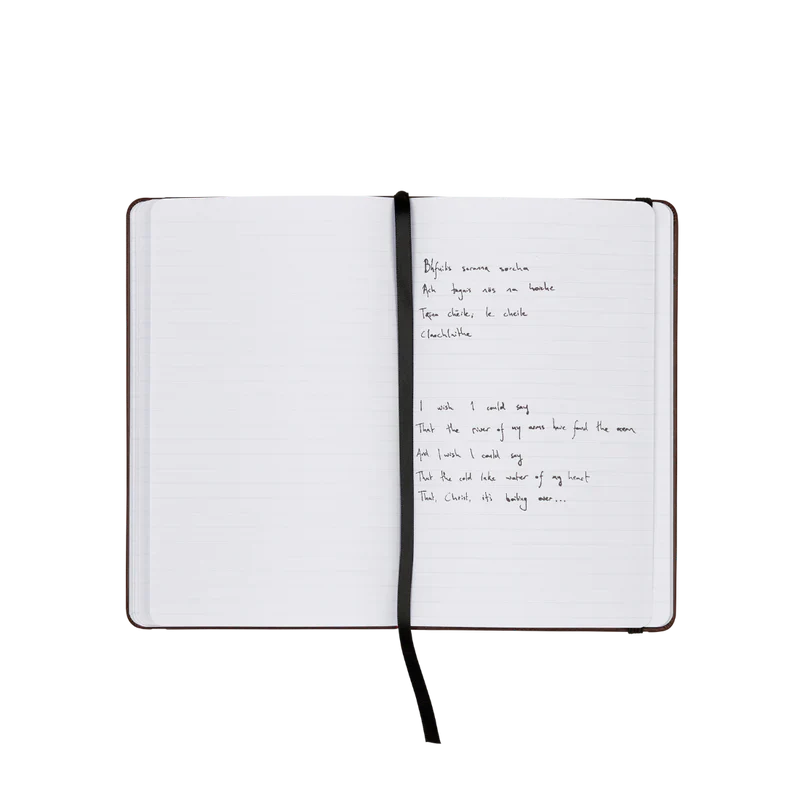 Bhfuilis soranna sorcha
Ach tagais nós na hoiche
Trína chéile, le cheile
Claochlaithe
I wish I could say
That the river of my arms have found the ocean
And I wish I could say
That the cold lake water of my heart
That, Christ, it's boiling over...